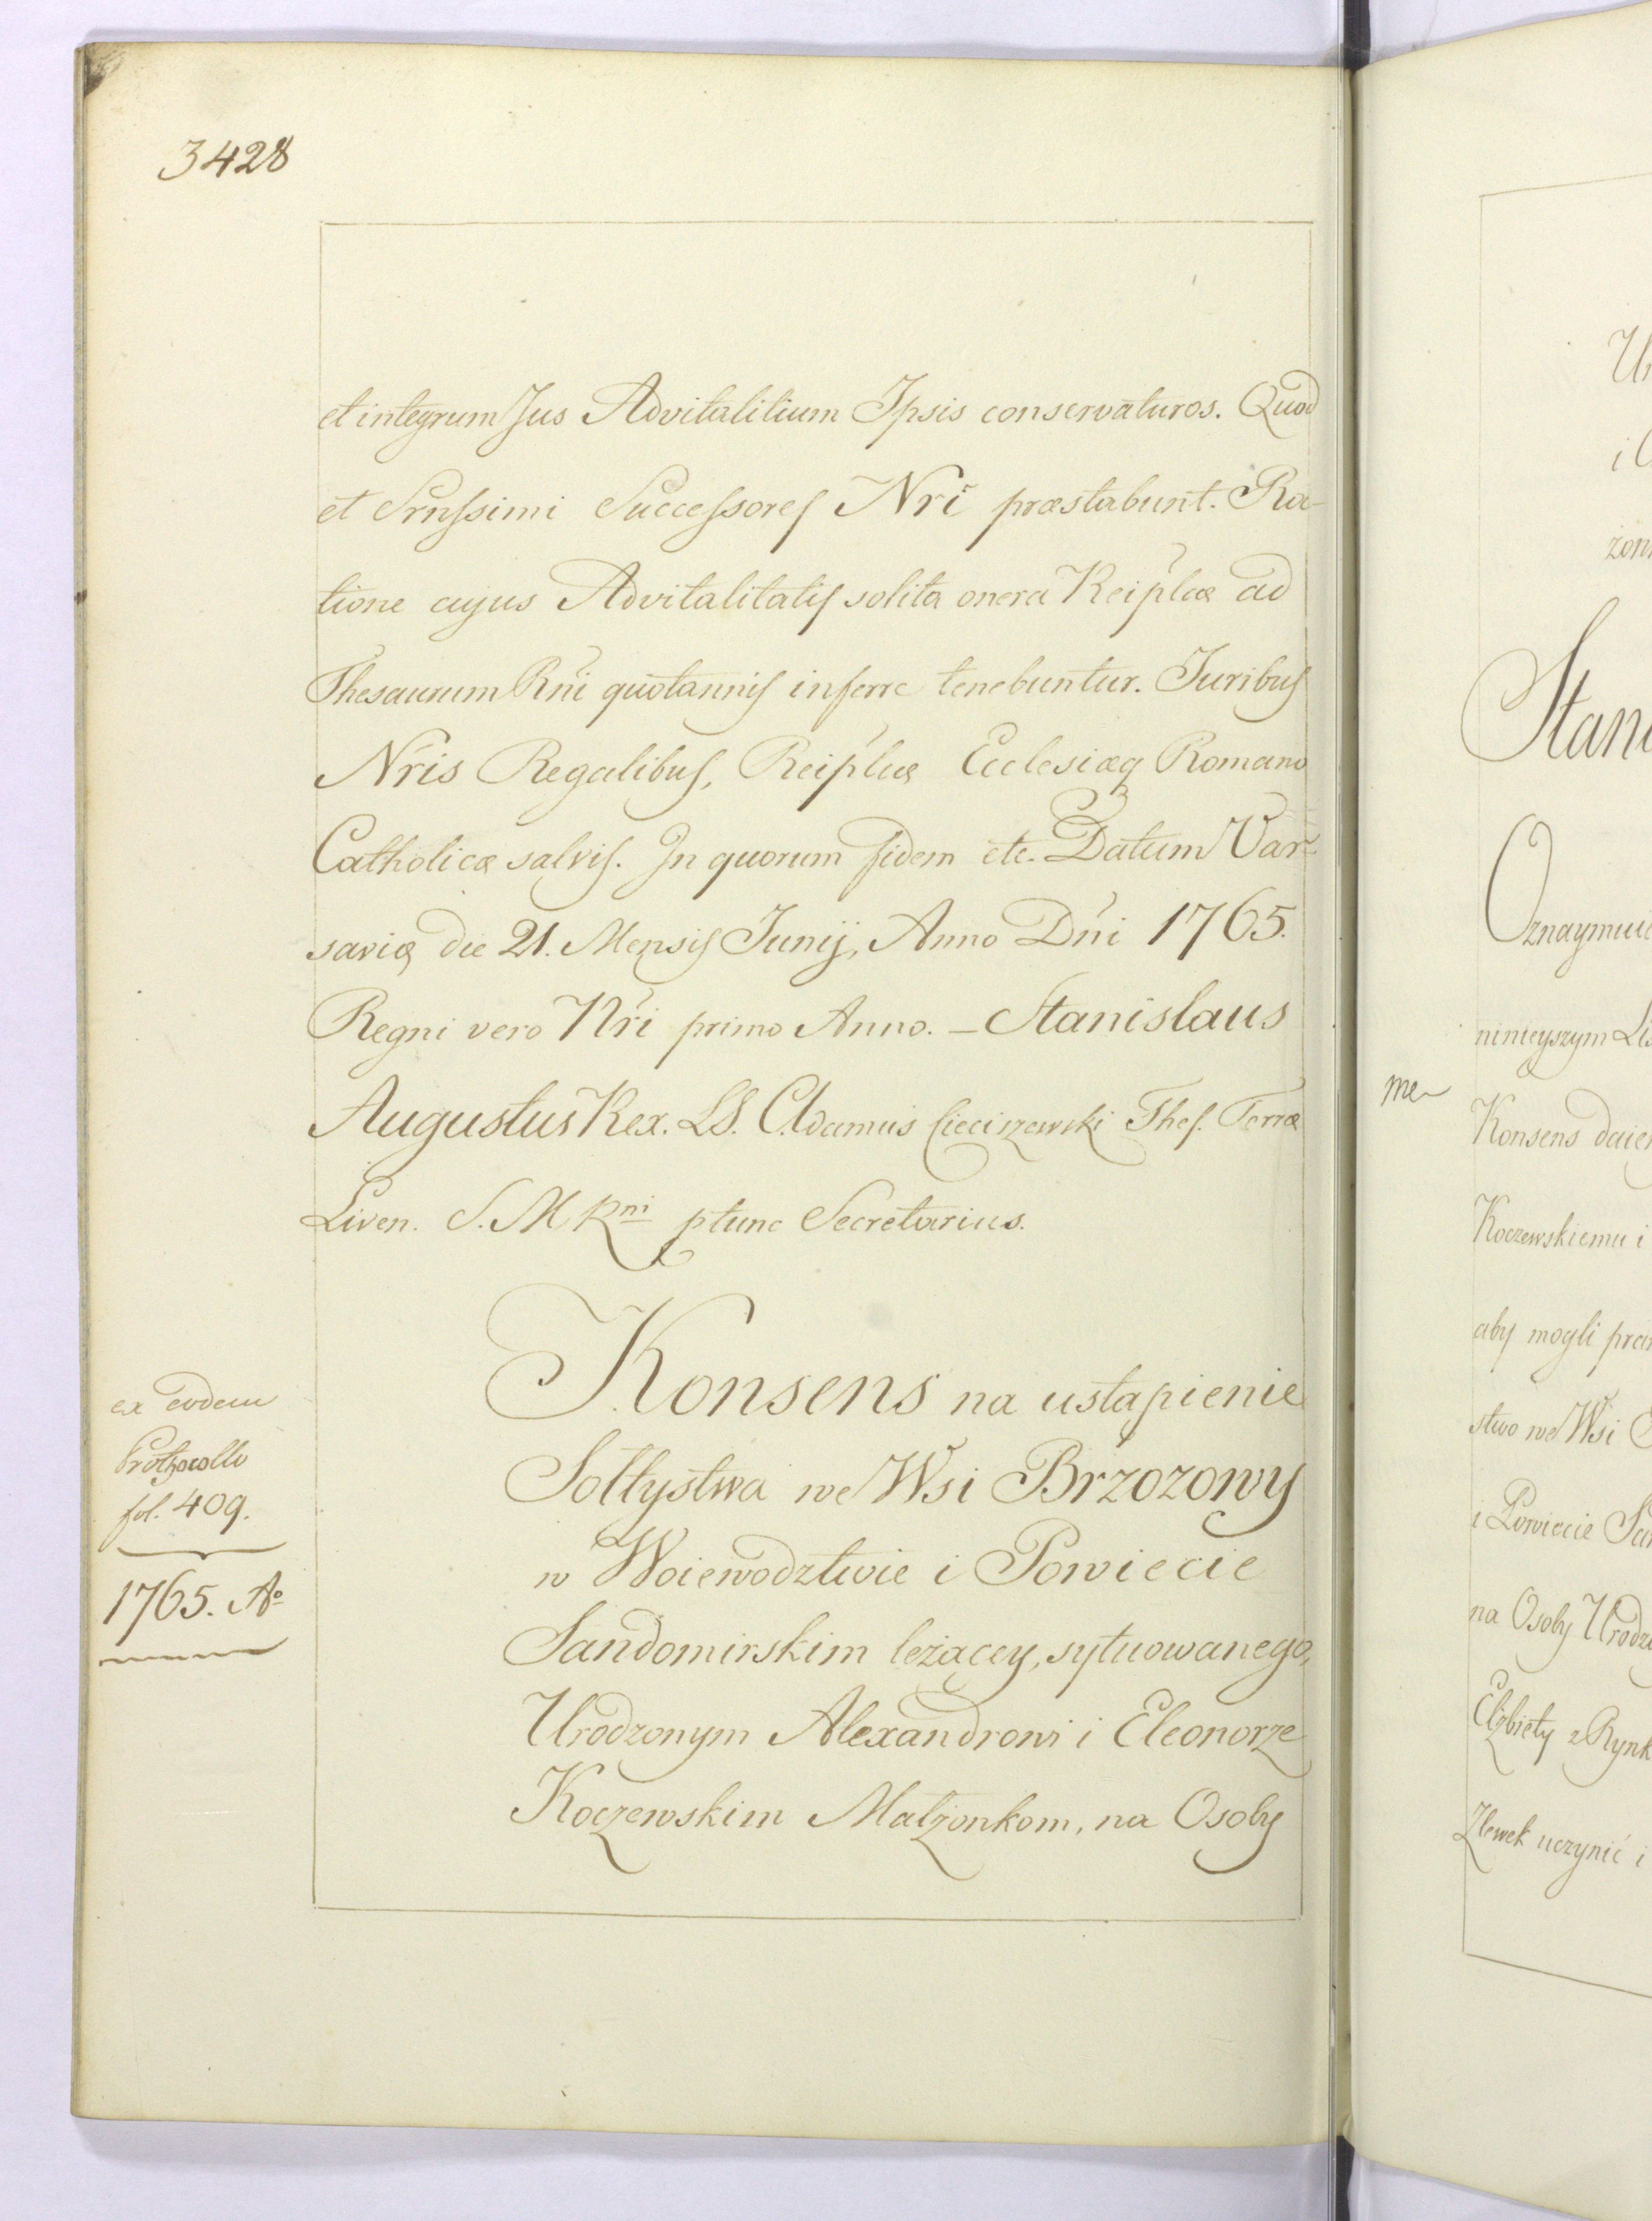 3428
et integrum Jus Advitalitium Ipsis conservaturos. Quod
et Srnssimi Successores Nri præstabunt. Ra-
tione cujus Advitalitatis solita onera Reiplcæ ad
Thesaurum Rni quotannis inferre tenebuntur. Juribus
Nris Regalibus, Reiplcæ Ecclesiæq Romano
Catholicæ salvis. In quorum fidem etc. Datum Var-
saviæ die 21. Mensis Junij, Anno Dni 1765.
Regni vero Nri primo Anno. – Stanislaus
Augustus Rex. LS. Adamus Cieciszewski Thes. Terræ
Liven. S. M Rni ptunc Secretarius.
ex eodem
Prothocollo
fol. 409.
1765. Ao
Konsens na ustąpienie
Sołtystwa we Wsi Brzozowy
w Woiewodztwie i Powiecie
Sandomirskim leżącey, sytuowanego,
Urodzonym Alexandrowi i Eleonorze
Koczewskim Małżonkom, na Osoby
Ur
i
żon
Stani
Oznaymu
ninieyszym Lis
me
Konsens daie
Koczewskiemu i
aby mogli pra
stwo we Wsi
i Powiecie San
na Osoby Urodz
Elżbiety z Rynk
Zlewek uczynić i